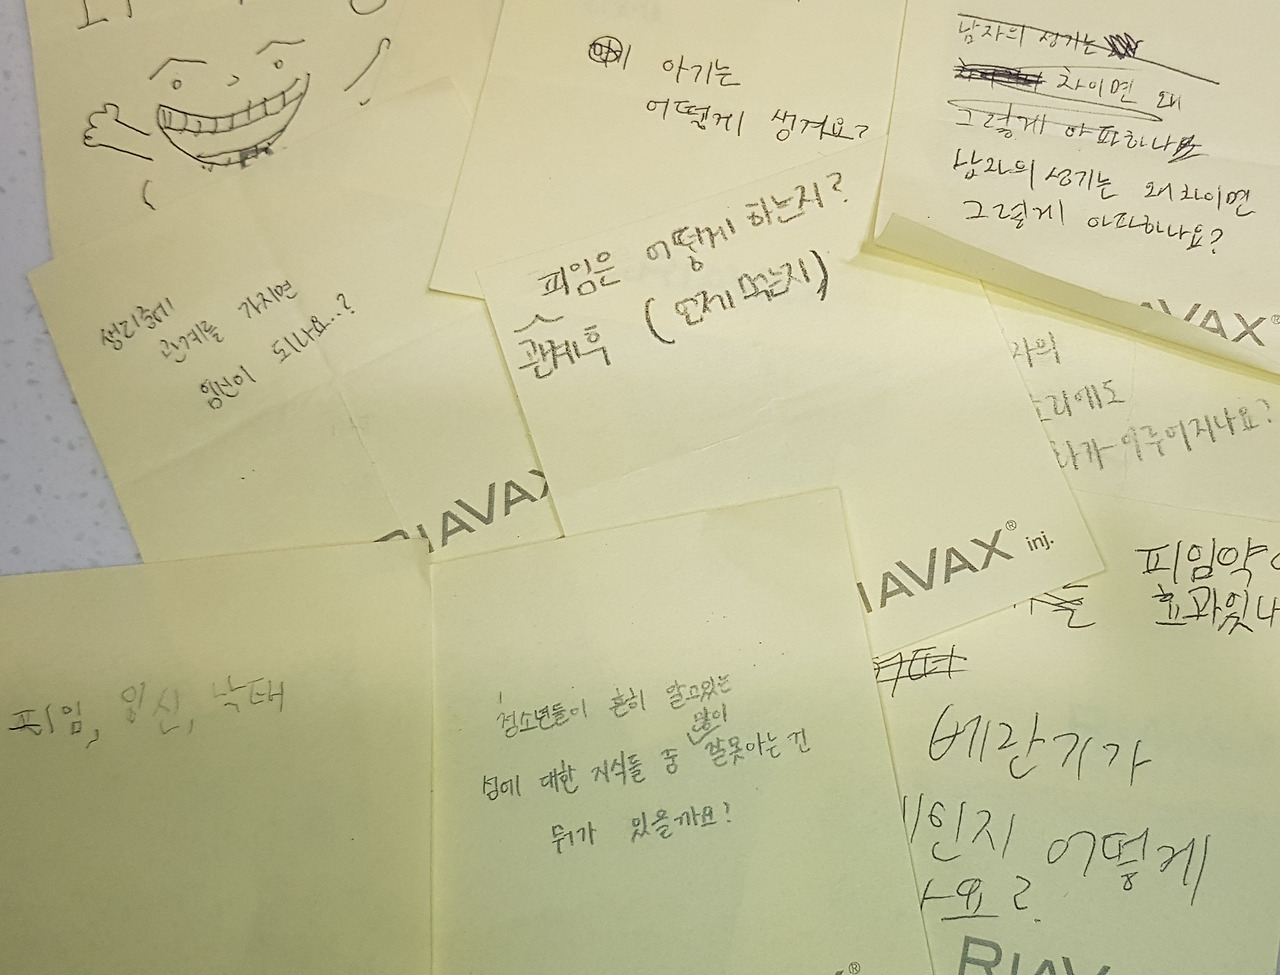 아기는
어떻게 생겨요?
남자의 성기는
차이면 왜
그렇게 아파하나요
남자의 성기는 왜 차이면
그렇게 아파하나요?
AVAX®
생리중에
관계를 가지면
임신이 되나요..?
RIAVAX
피임은 어떻게 하는지?
관계후 (언제 먹는지)
IAVAX® inj.
자의
소리에도
이루어지나요?
피임약
효과있나
베란기가
인지 어떻게
요?
RIAV
피임, 임신, 낙태
청소년들이 흔히 알고있는
성에 대한 지식들 중 많이 잘못아는 건
뭐가 있을까요?
®